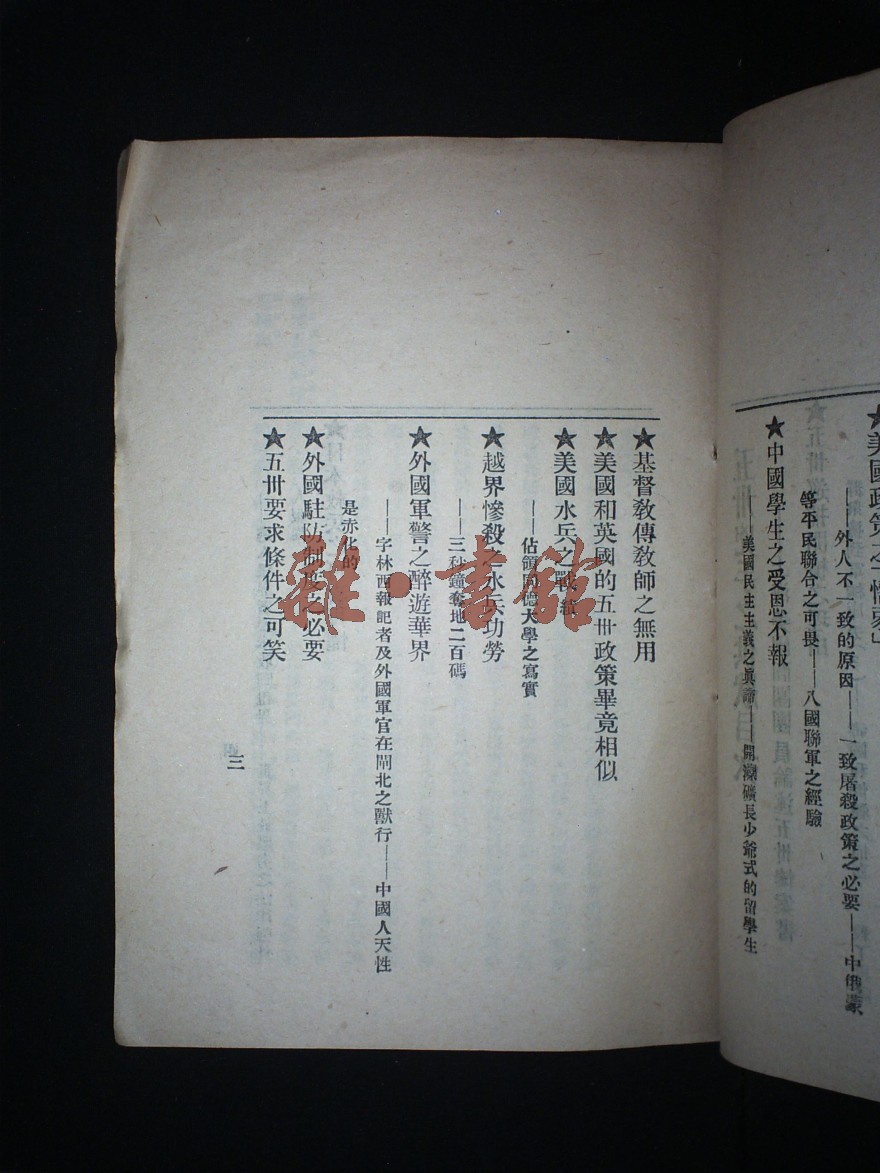 ★美國政策之
——外人不一致的原因——一致屠殺政策之必要——中俄蒙
等平民聯合之可畏——八國聯軍之經驗
★中國學生之受恩不報
——美國民主主義之眞諦——開灤礦長少爺式的留學生
★基督教傳教師之無用
★美國和英國的五卅政策畢竟相似
★美國水兵之戰績
——佔領同德大學之寫實
★越界慘殺之水兵功勞
——三秒鐘奪地二百碼
★外國軍警之醉遊華界
——字林西報記者及外國軍官在閘北之獸行——中國人天性
是赤化的
★外國駐防制度之必要
★五卅要求條件之可笑
三
雜·書館